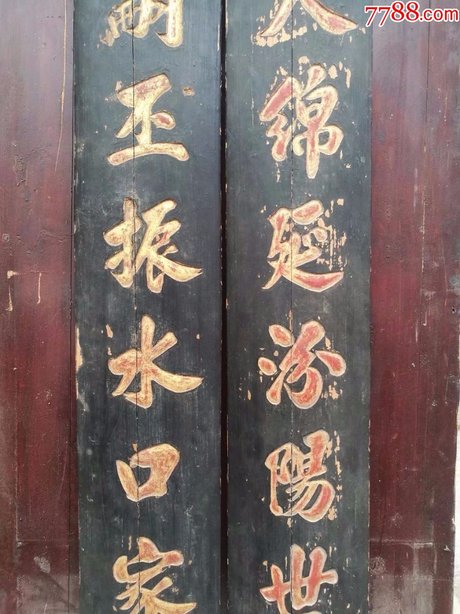 7788.com
綿延汾陽世
丕振水口家